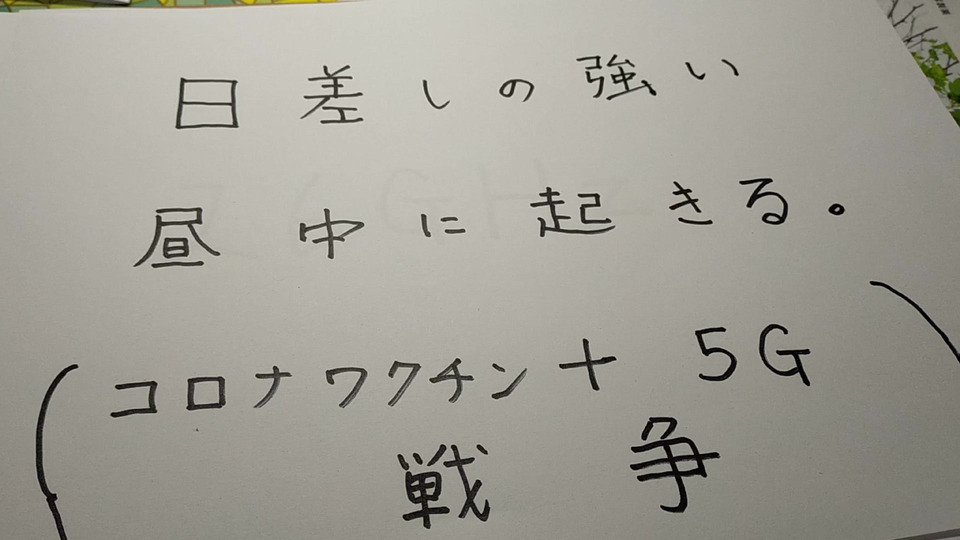 日差しの強い
昼中に起きる。
(コロナワクチン+5G
戦争)